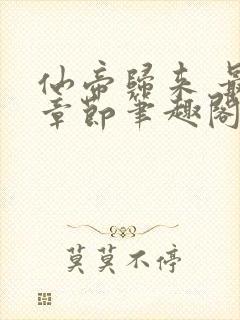 仙帝歸来 最
章節筆趣閣
莫莫不停